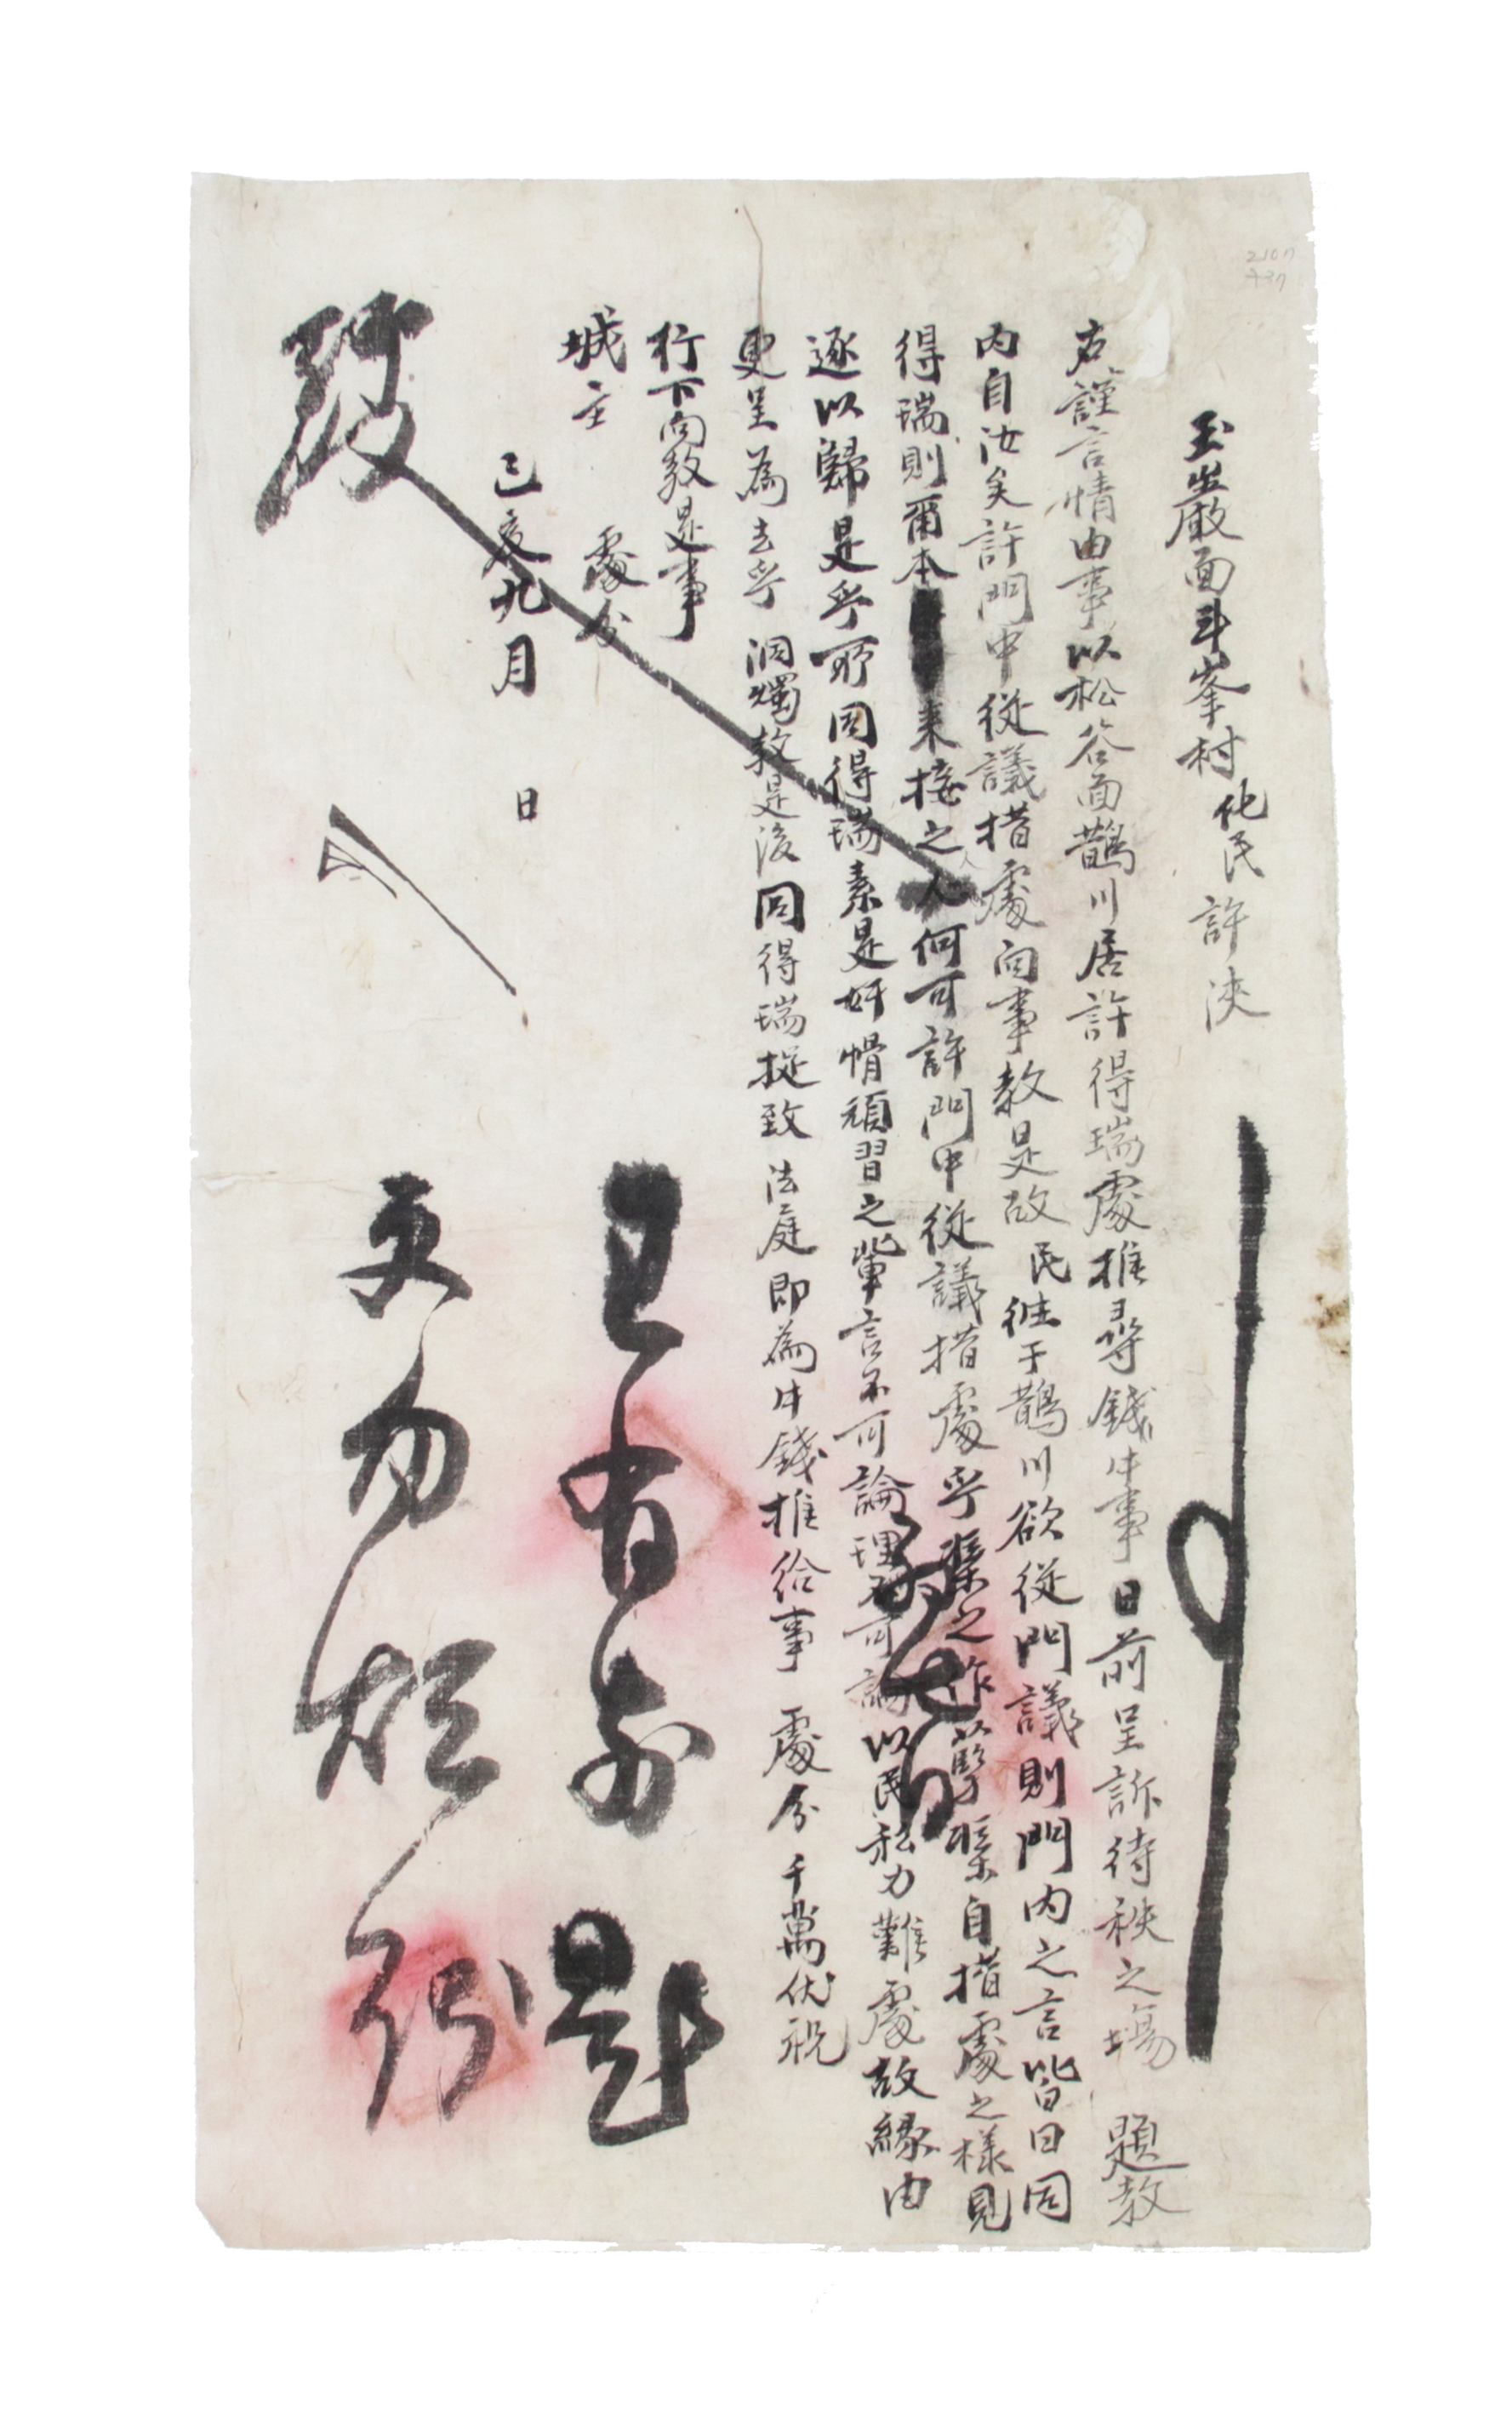 玉山嚴面斗峯村化民許浹
右謹言情由事以松谷面鵲川居許得瑞處推尋錢牛事日前呈訴待秩之場 題教
內自汝矣許門中從議措處向事敎是故 民往于鵲川欲從門議則門內之言皆曰同
得瑞則爾本 來接之人何可許門中從議措處乎渠之作孼渠自措處之樣見
逐以歸是乎所同得瑞素是奸猾頑習之輩言不可論理不可論以民私力難處故緣由
更呈爲去乎 洞燭敎是後同得瑞捉致 法庭卽爲牛錢推給事 處分千萬伏祝
行下向敎是事
城主 處分
己亥九月 日
已有前題
更勿煩
2107
437